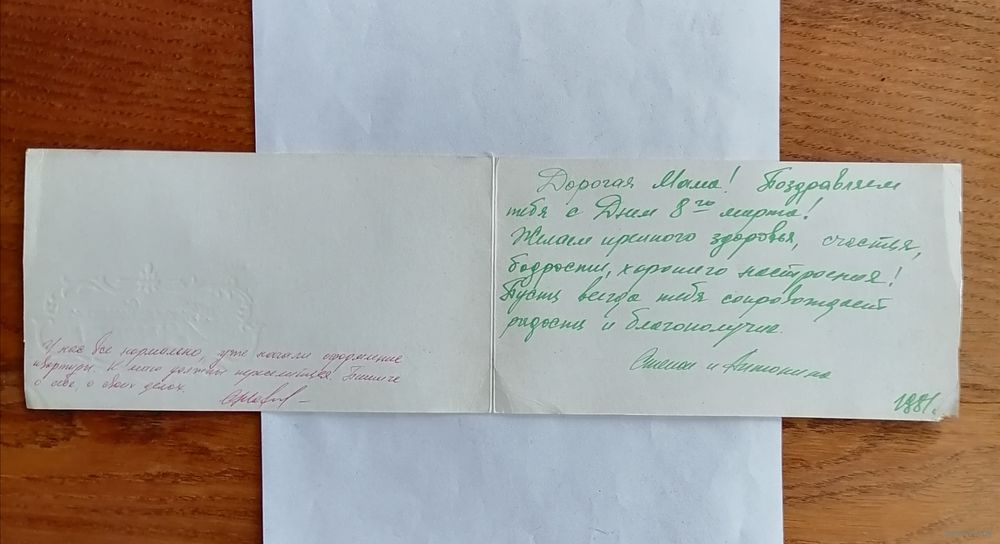 У нас все нормально, уже начали оформление
квартиры. К маю должны переселиться. Пишите
о себе, о своих делах.
Дорогая Мама! Поздравляем
тебя с Днем 8го марта!
Желаем крепкого здоровья, счастья,
бодрости, хорошего настроения!
Пусть всегда тебя сопровождает
радость и благополучие.
Степан и Антонина
1981г.